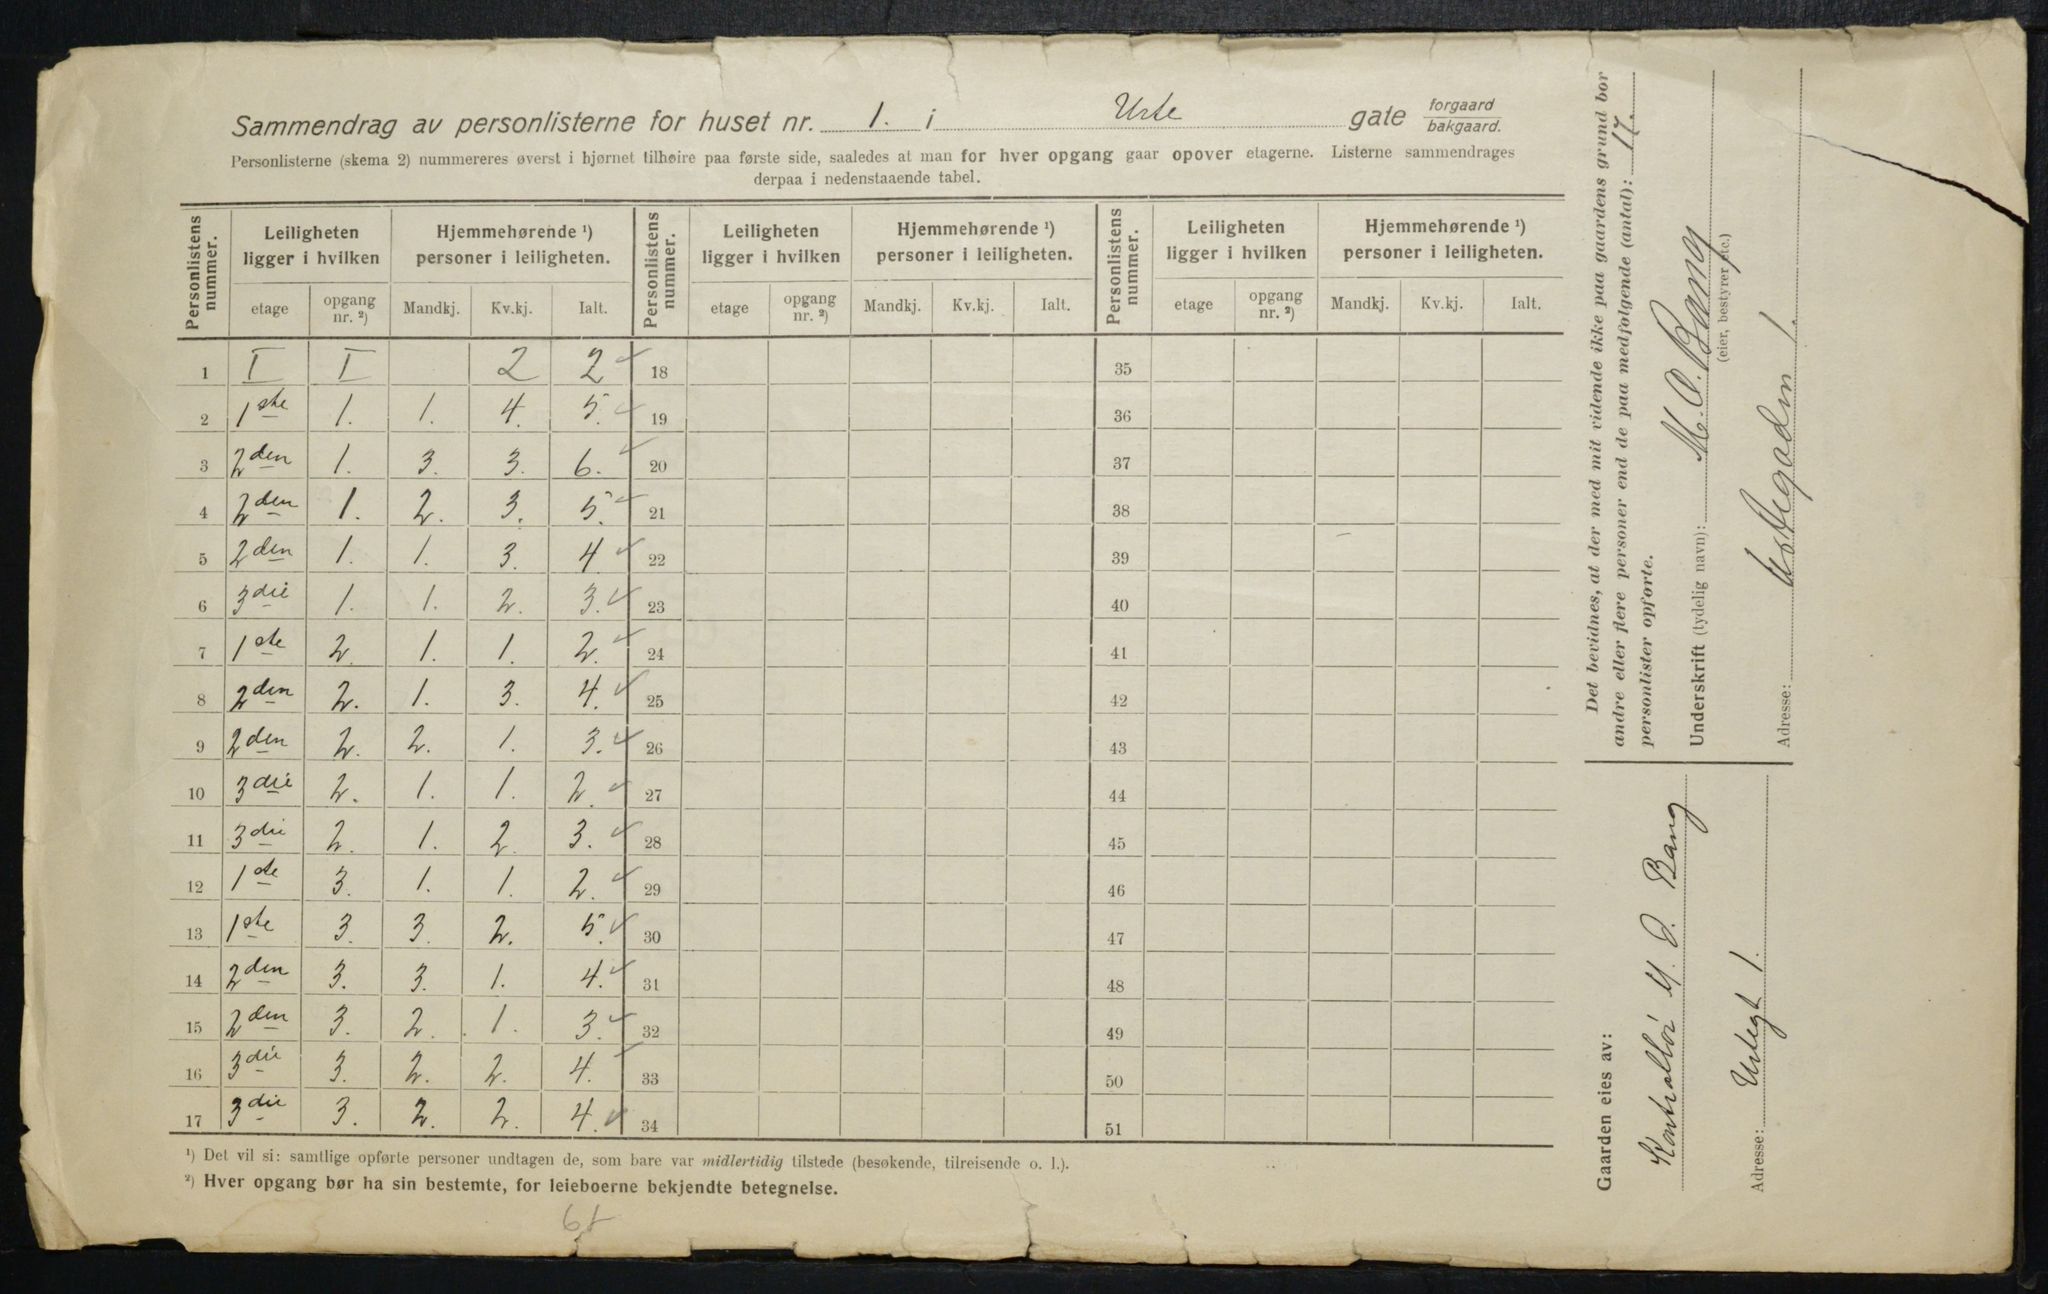 Sammendrag av personlisterne for huset nr. 1. i Urte gate forgaard bakgaard.
Personlisterne (skema 2) nummereres øverst i hjørnet tilhøire paa første side, saaledes at man for hver opgang gaar opover etagerne. Listerne sammendrages
derpaa i nedenstaaende tabel.
Personlistens nummer. Leiligheten ligger i hvilken Hjemmehørende ¹) personer i leiligheten. Personlistens nummer. Leiligheten ligger i hvilken Hjemmehørende ¹) personer i leiligheten. Personlistens nummer. Leiligheten ligger i hvilken Hjemmehørende ¹) personer i leiligheten.
etage opgang nr. ²) Mandkj. Kv.kj. Ialt. etage opgang nr. ²) Mandkj. Kv.kj. Ialt. etage opgang nr. ²) Mandkj. Kv.kj. Ialt.
1 I I 2 2 ✓ 18 35
2 1ste 1. 1. 4. 5. ✓ 19 36
3 2den 1. 3. 3. 6. ✓ 20 37
4 2den 1. 2. 3. 5. ✓ 21 38
5 2den 1. 1. 3. 4. ✓ 22 39 –
6 3die 1. 1. 2. 3. ✓ 23 40
7 1ste 2. 1. 1. 2. ✓ 24 41
8 2den 2. 1. 3. 4. ✓ 25 42
9 2den 2. 2. 1. 3. ✓ 26 43
10 3die 2. 1. 1. 2. ✓ 27 44
11 3die 2. 1. 2. 3. ✓ 28 45
12 1ste 3. 1. 1. 2. ✓ 29 46
13 1ste 3. 3. 2. 5. ✓ 30 47
14 2den 3. 3. 1. 4. ✓ 31 48
15 2den 3. 2. 1. 3. ✓ 32 49
16 3die 3. 2. 2. 4. ✓ 33 50
17 3die 3. 2. 2. 4. ✓ 34 51
¹) Det vil si: samtlige opførte personer undtagen de, som bare var midlertidig tilstede (besøkende, tilreisende o. l.).
²) Hver opgang bør ha sin bestemte, for leieboerne bekjendte betegnelse.
Det bevidnes, at der med mit vidende ikke paa gaardens grund bor
andre eller flere personer end de paa medfølgende (antal): 17.
personlister opførte.
Underskrift (tydelig navn): M. O. Bang
(eier, bestyrer etc.)
Adresse: Urtegaden 1.
Gaarden eies av:
Kontrollör M. O. Bang
Adresse: Urtegt 1.